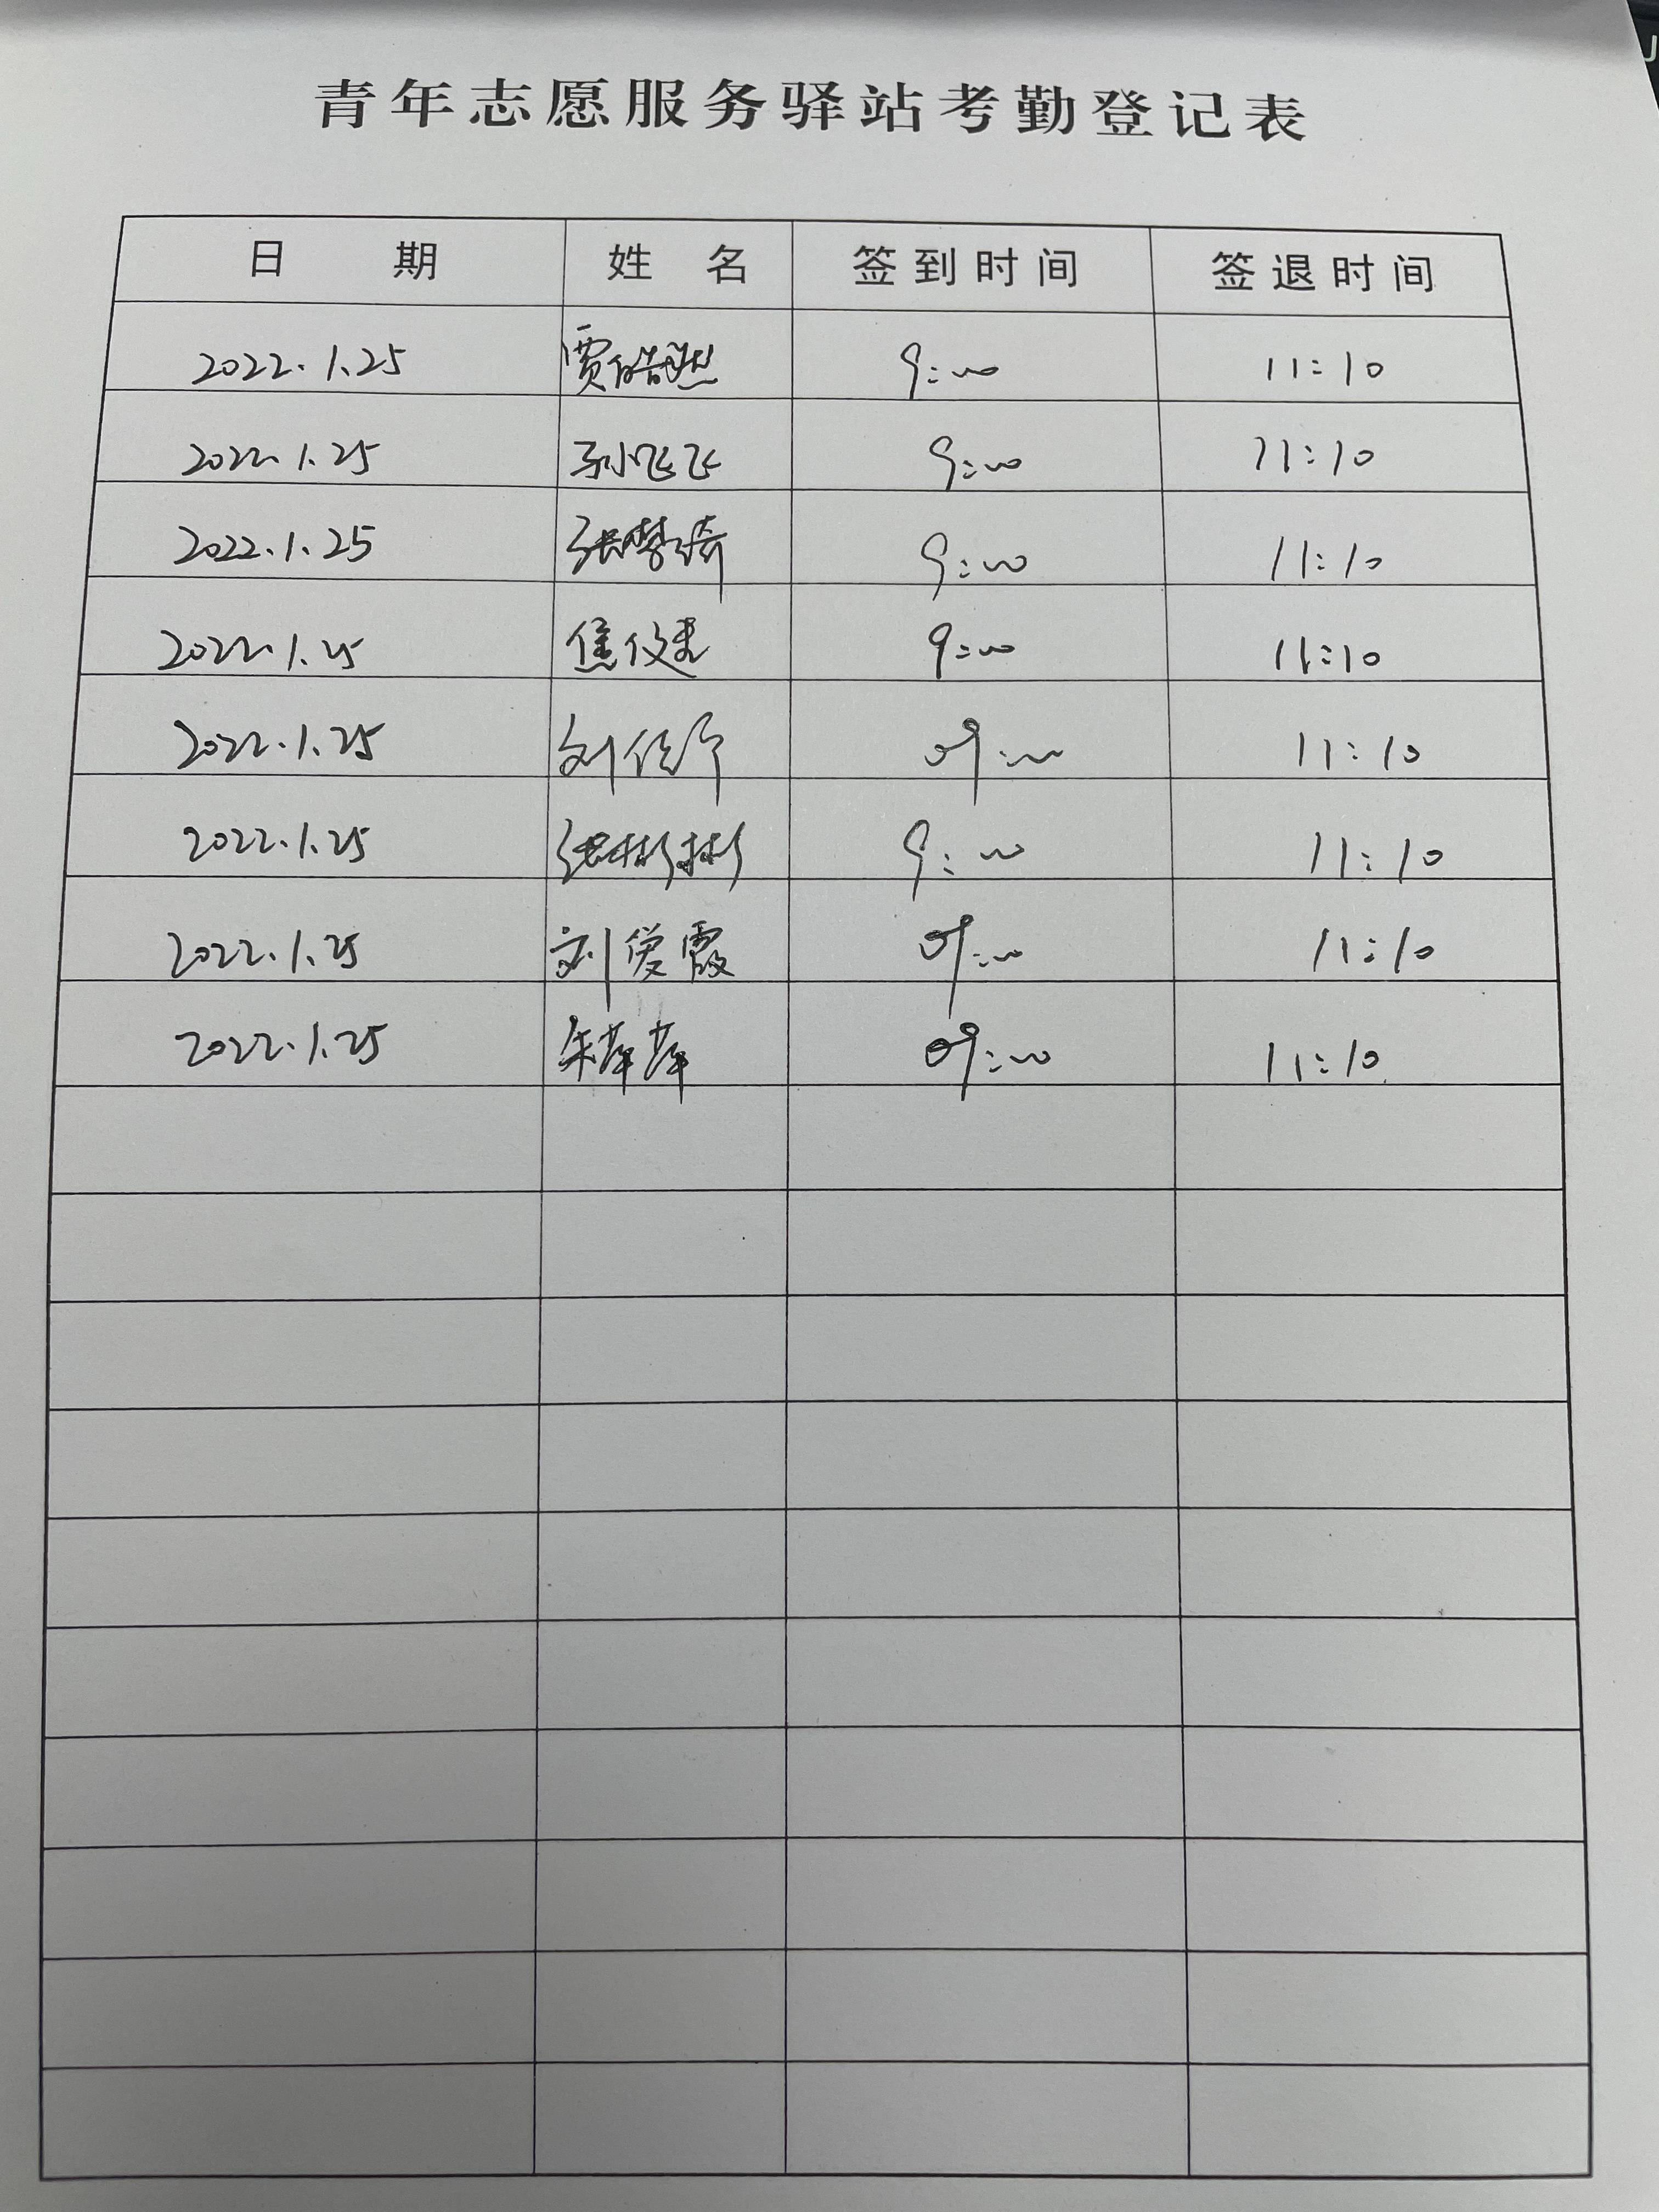 青年志愿服务驿站考勤登记表
日 期 姓 名 签到时间 签退时间
2022.1.25 贾皓燃 9:00 11:10
2022.1.25 孙飞飞 9:00 11:10
2022.1.25 张梦琦 9:00 11:10
2022.1.25 焦俊 9:00 11:10
2022.1.25 刘 09:00 11:10
2022.1.25 张彬彬 9:00 11:10
2022.1.25 刘爱霞 09:00 11:10
2022.1.25 朱萍萍 09:00 11:10